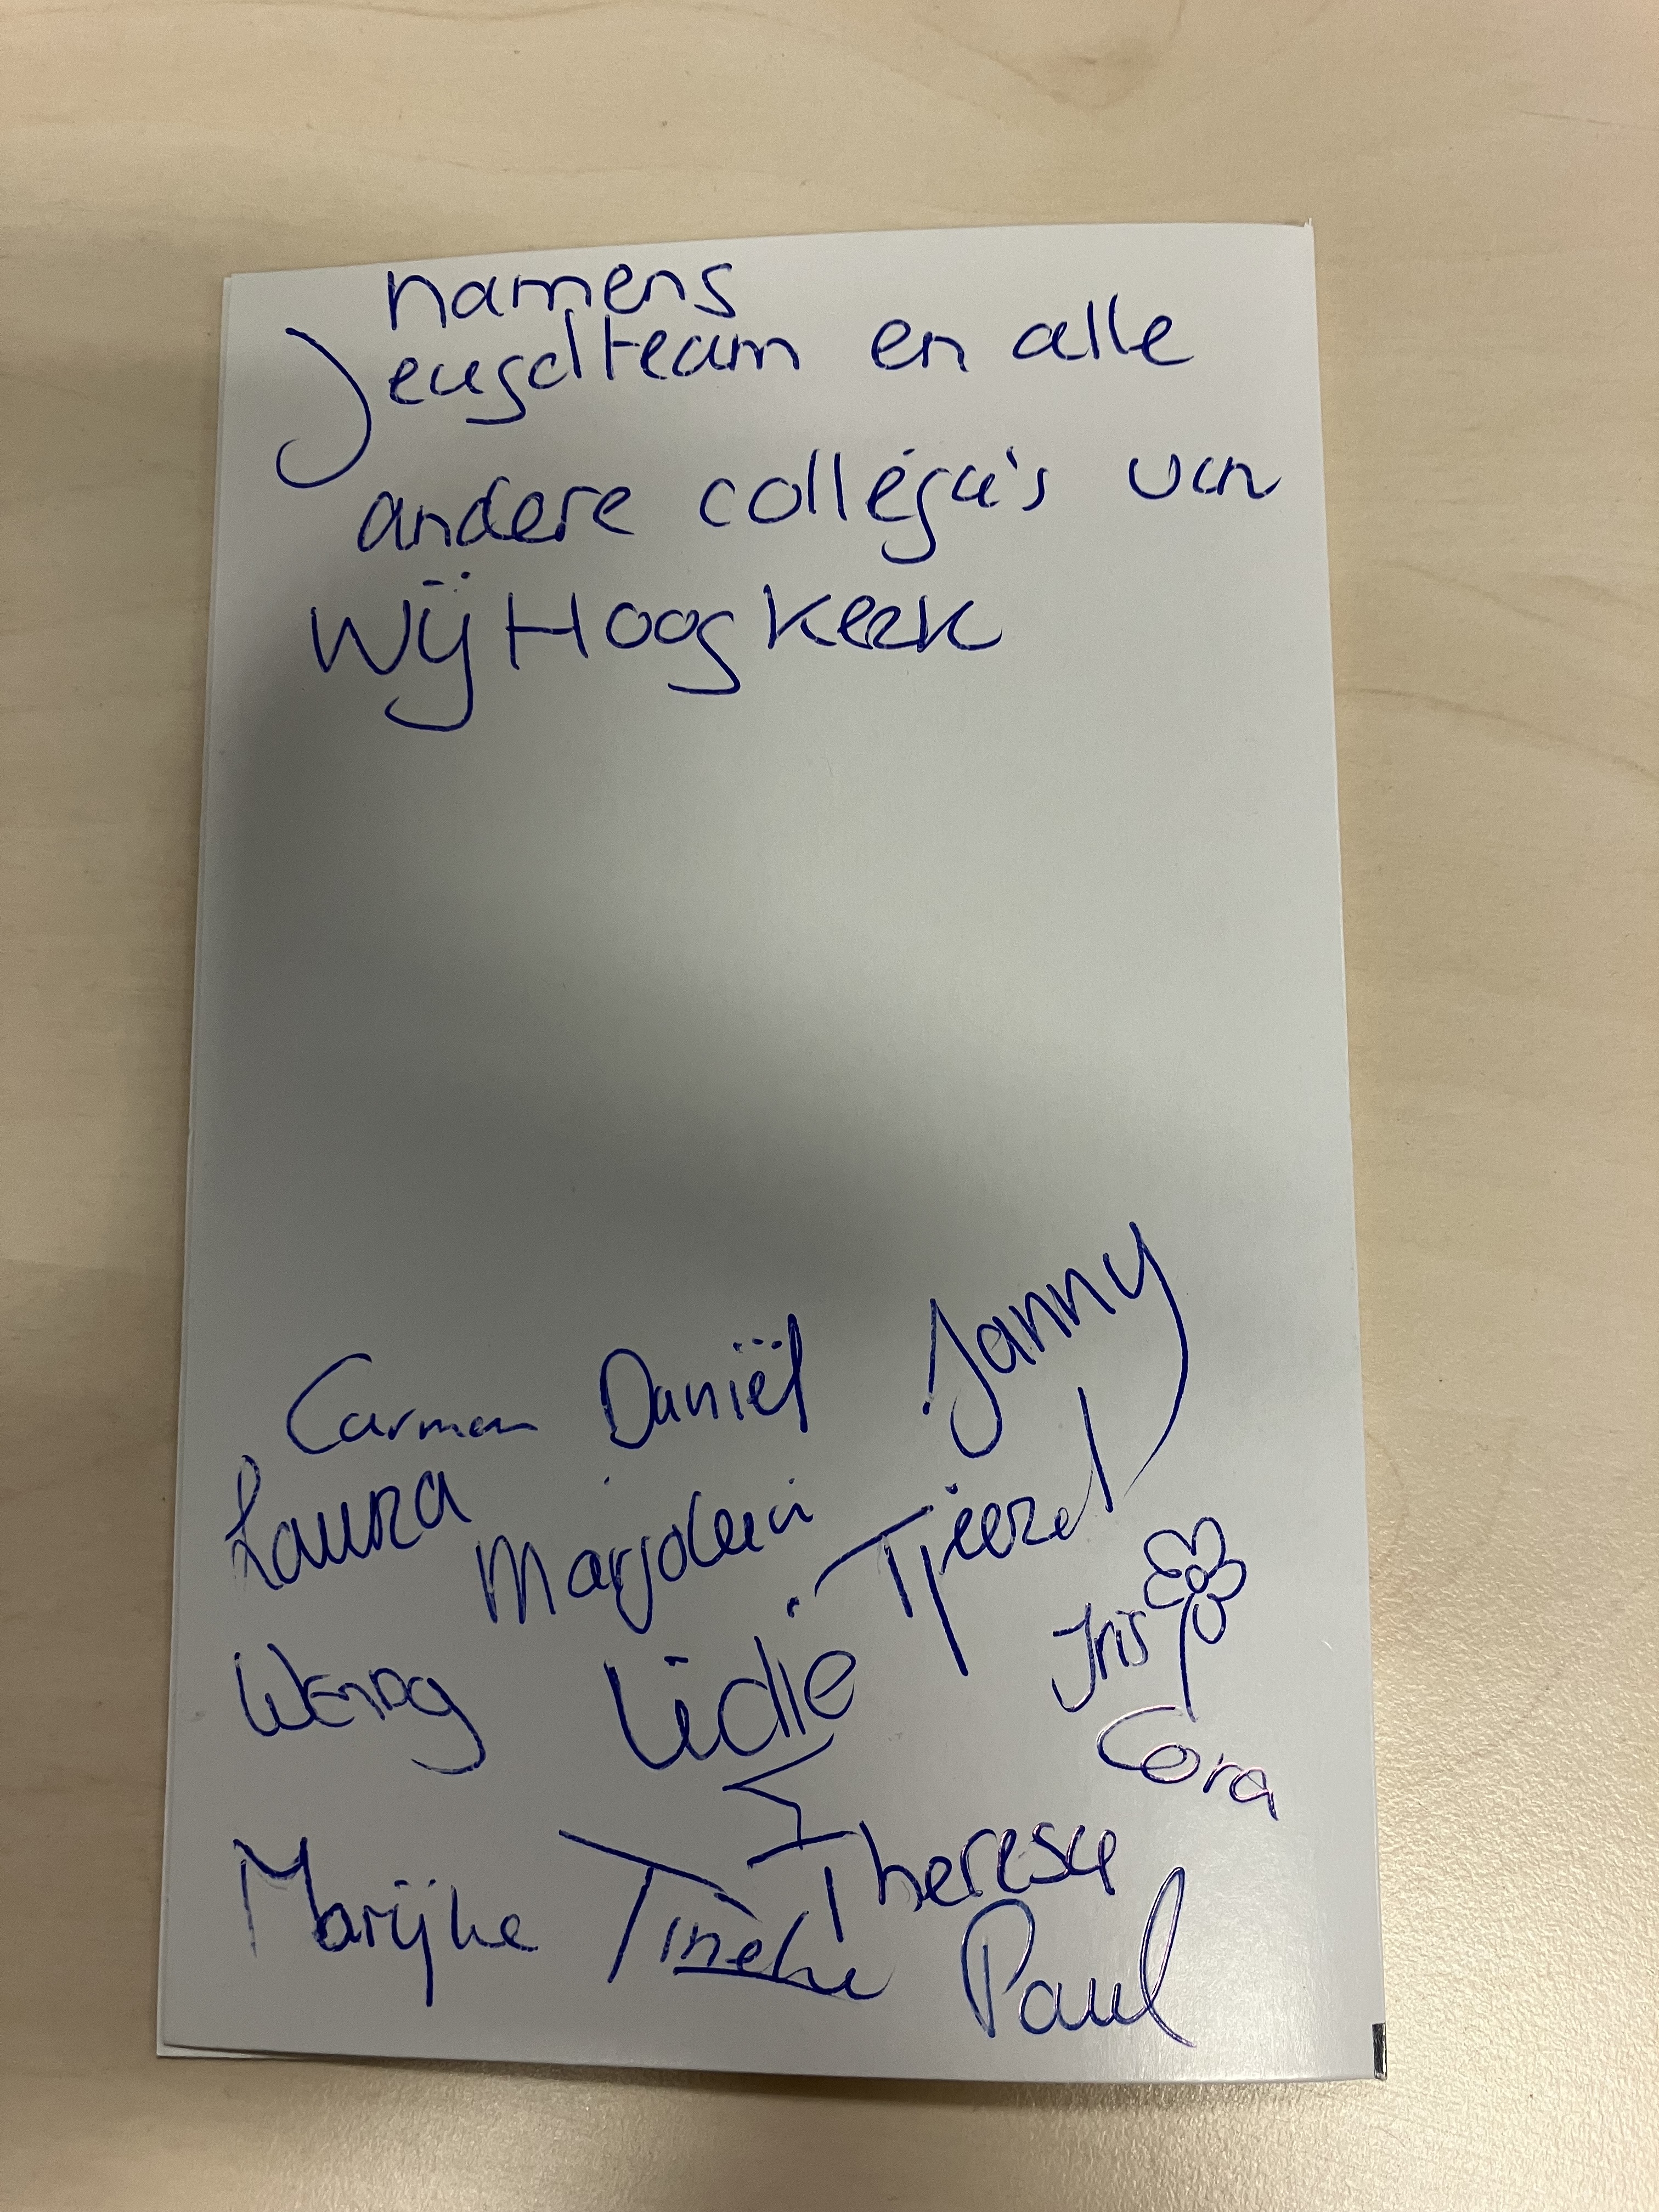 namens
Jeugdteam en alle
andere collega's van
Wij Hoogkerk
Carmen Daniël Janny
Laura Marjolein Tjeerd
Wendy Lidie Iris
Cora
Marijke Tineke Therese
Paul